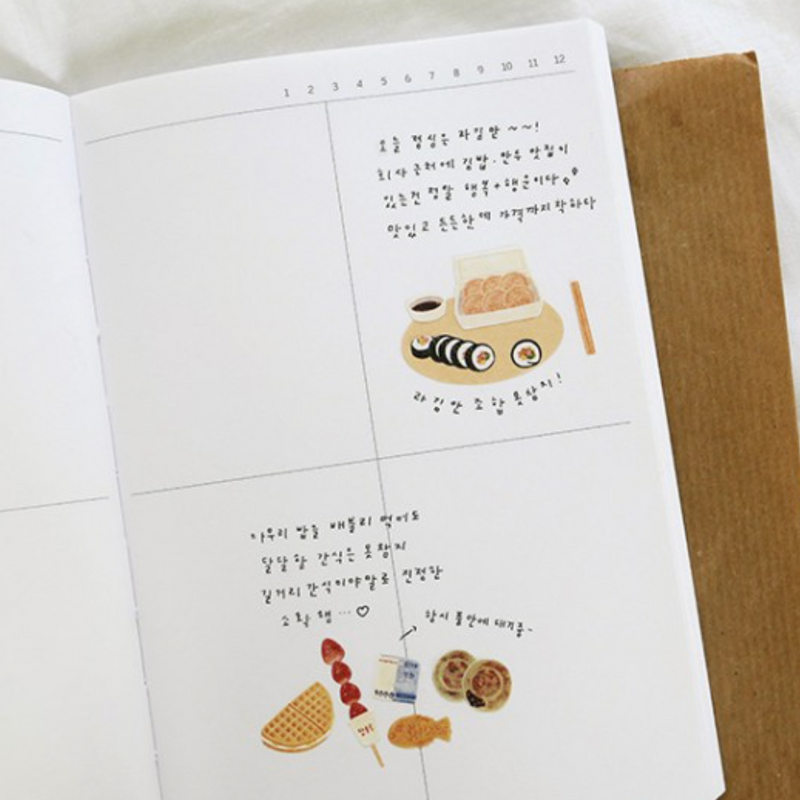 1 2 3 4 5 6 7 8 9 10 11 12
오늘 점심은 라김만 ~~!
회사 근처에 김밥·만두 맛집이
있는건 정말 행복+행운이다
맛있고 든든한데 가격까지 착하다
라김만 조합 못참지!
아무리 밥을 배불리 먹어도
달달한 간식은 못참지
길거리 간식이야말로 진정한
소확행 … ♡
항시 품안에 대기중~